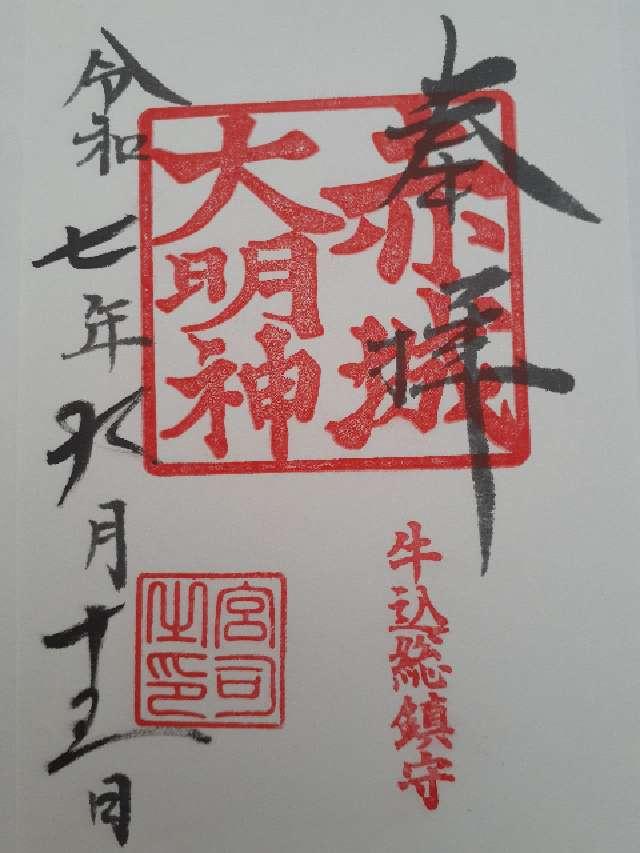 奉拝
赤城
大明神
牛込総鎮守
宮司
之印
令和七年九月十五日